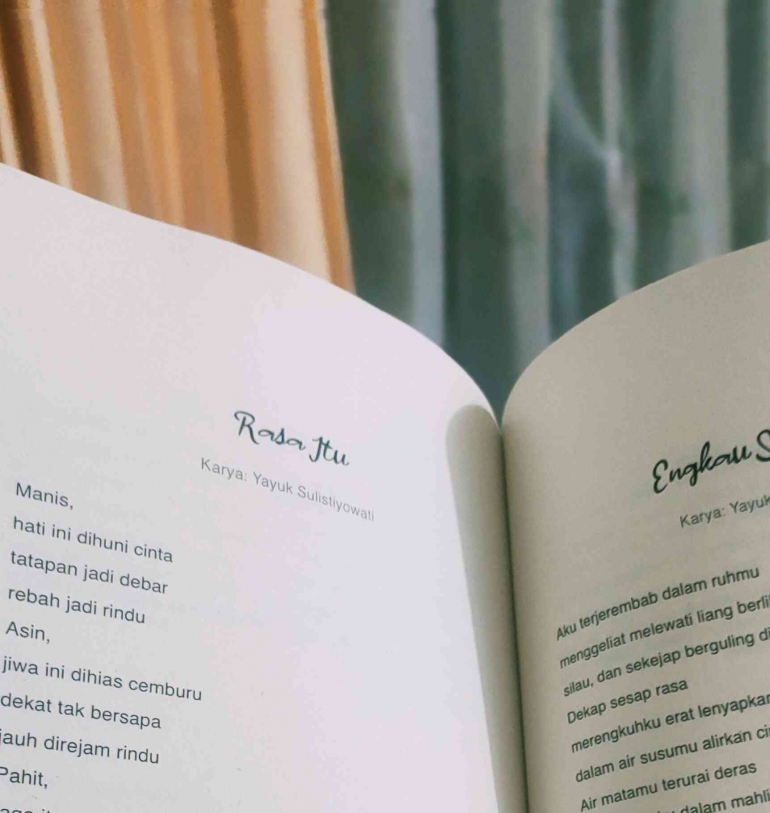 Rasa Itu
Karya: Yayuk Sulistiyowati
Manis,
hati ini dihuni cinta
tatapan jadi debar
rebah jadi rindu
Asin,
jiwa ini dihias cemburu
dekat tak bersapa
jauh direjam rindu
Pahit,
Engkau
Karya: Yayuk
Aku terjerembab dalam ruhmu
menggeliat melewati liang
silau, dan sekejap berguling
Dekap sesap rasa
merengkuhku erat
dalam air susumu alirkan
Air matamu terurai deras
dalam